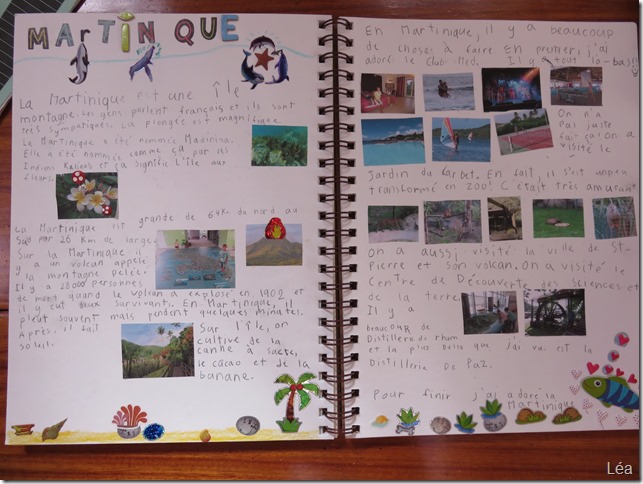 MARTINIQUE
La Martinique est une île
montagne. Les gens parlent français et ils sont
très sympatiques. La plongée est magnifique.
La Martinique a été nommée Madinina.
Elle a été nommée comme ça par les
Indiens et ça signifie l'île aux
fleurs.
La Martinique est grande de 64 Km du nord au
Sud par 26 Km de large.
Sur la Martinique il
y a un volcan appelé
la montagne pelée.
Il y a 28000 personnes
de mort quand le volcan a explosé en 1902 et
il y eut deux survivant. En Martinique, il
pleut souvent mais pendant quelques minutes.
Après, il fait
soleil.
Sur l'île, on
cultive de la
canne à sucre,
le cacao et de la
banane.
En Martinique, il y a beaucoup
de choses à faire. En premier, j'ai
adoré le Club-Med. Il y a tout là-bas!!
On n'a
pas juste
fait ça! On a
visité le
Jardin du Carbet. En fait, il s'ont un peu
transformé en zoo! C'était très amusant
On a aussi visité la ville de St-
Pierre et son volcan. On a visité le
Centre de Découverte des sciences et
de la terre.
Il y a
beaucoup de
Distillerie de rhum
et la plus belle que j'ai vu est la
Distillerie De Paz.
Pour finir j'ai adoré la
Martinique
Léa